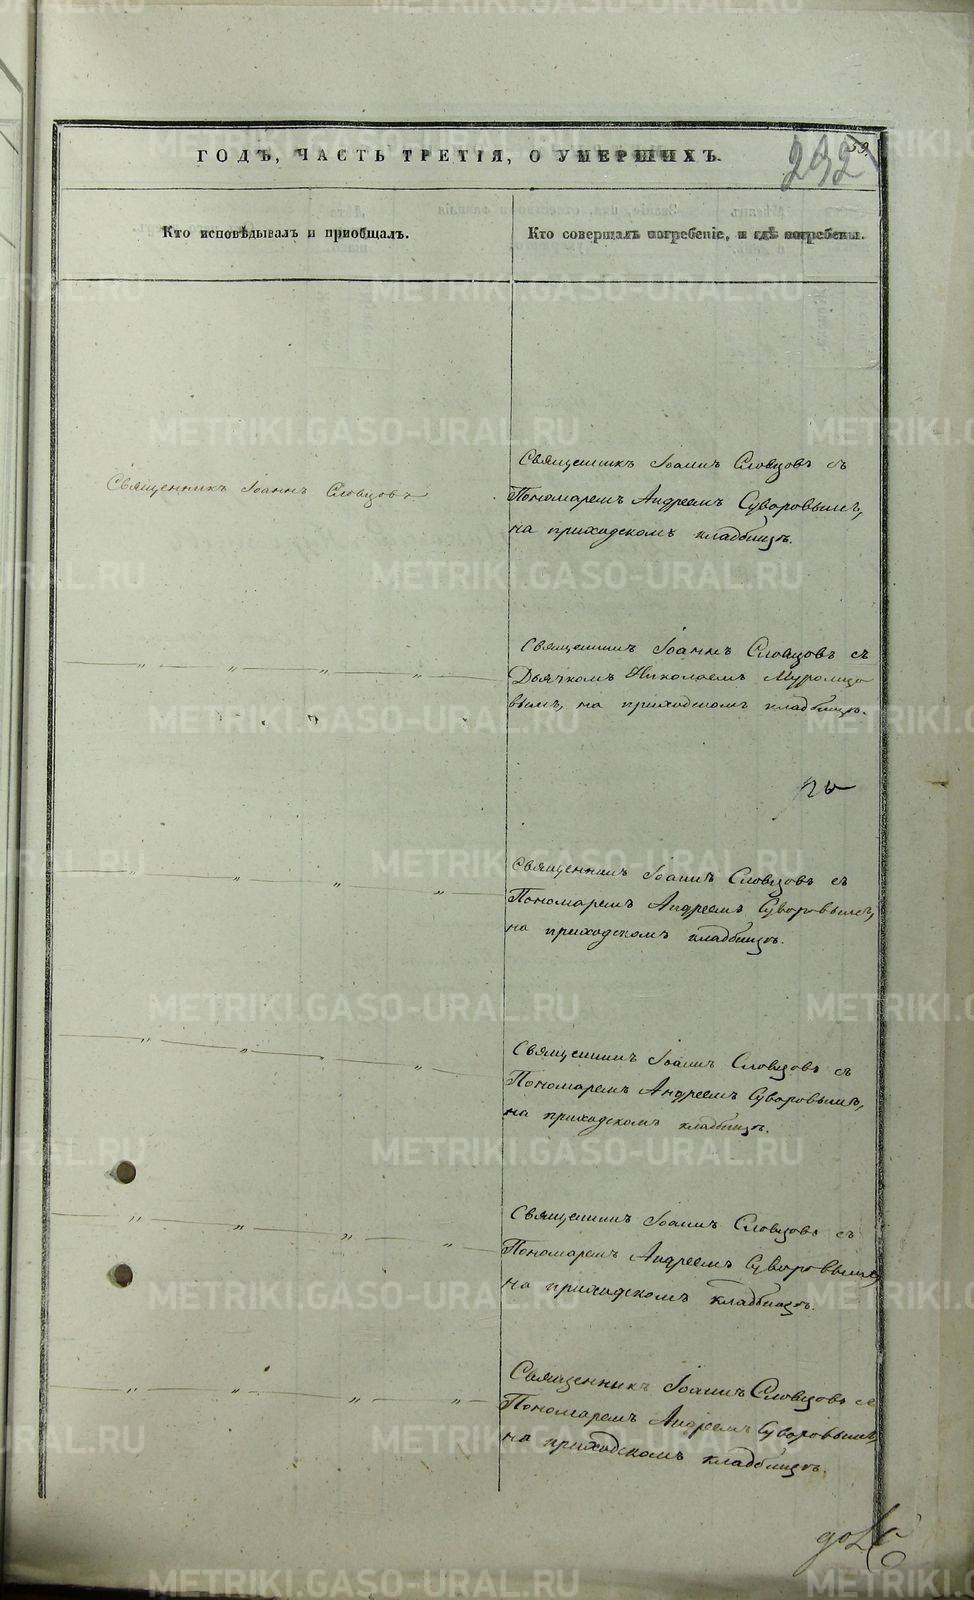 59.
292
ГОДЪ, ЧАСТЬ ТРЕТІЯ, О УМЕРШИХЪ.
Кто исповѣдывалъ и пріобщалъ.
Кто совершалъ погребеніе, и гдѣ погребены.
Священникъ Іоаннъ Словцовъ
Священникъ Іоаннъ Словцовъ съ
Пономаремъ Андреемъ Суворовымъ,
на приходскомъ кладбищѣ.
— „ — „ — „ — „ —
Священникъ Іоаннъ Словцовъ съ
Дьячкомъ Николаемъ Муромцо
вымъ, на приходскомъ кладбищѣ.
— „ — „ — „ — „ —
Священникъ Іоаннъ Словцовъ съ
Пономаремъ Андреемъ Суворовымъ,
на приходскомъ кладбищѣ.
— „ — „ — „ — „ —
Священникъ Іоаннъ Словцовъ съ
Пономаремъ Андреемъ Суворовымъ,
на приходскомъ кладбищѣ.
— „ — „ — „ — „ —
Священникъ Іоаннъ Словцовъ съ
Пономаремъ Андреемъ Суворовымъ,
на приходскомъ кладбищѣ.
— „ — „ — „ — „ —
Священникъ Іоаннъ Словцовъ съ
Пономаремъ Андреемъ Суворовымъ,
на приходскомъ кладбищѣ.
METRIKI.GASO-URAL.RU